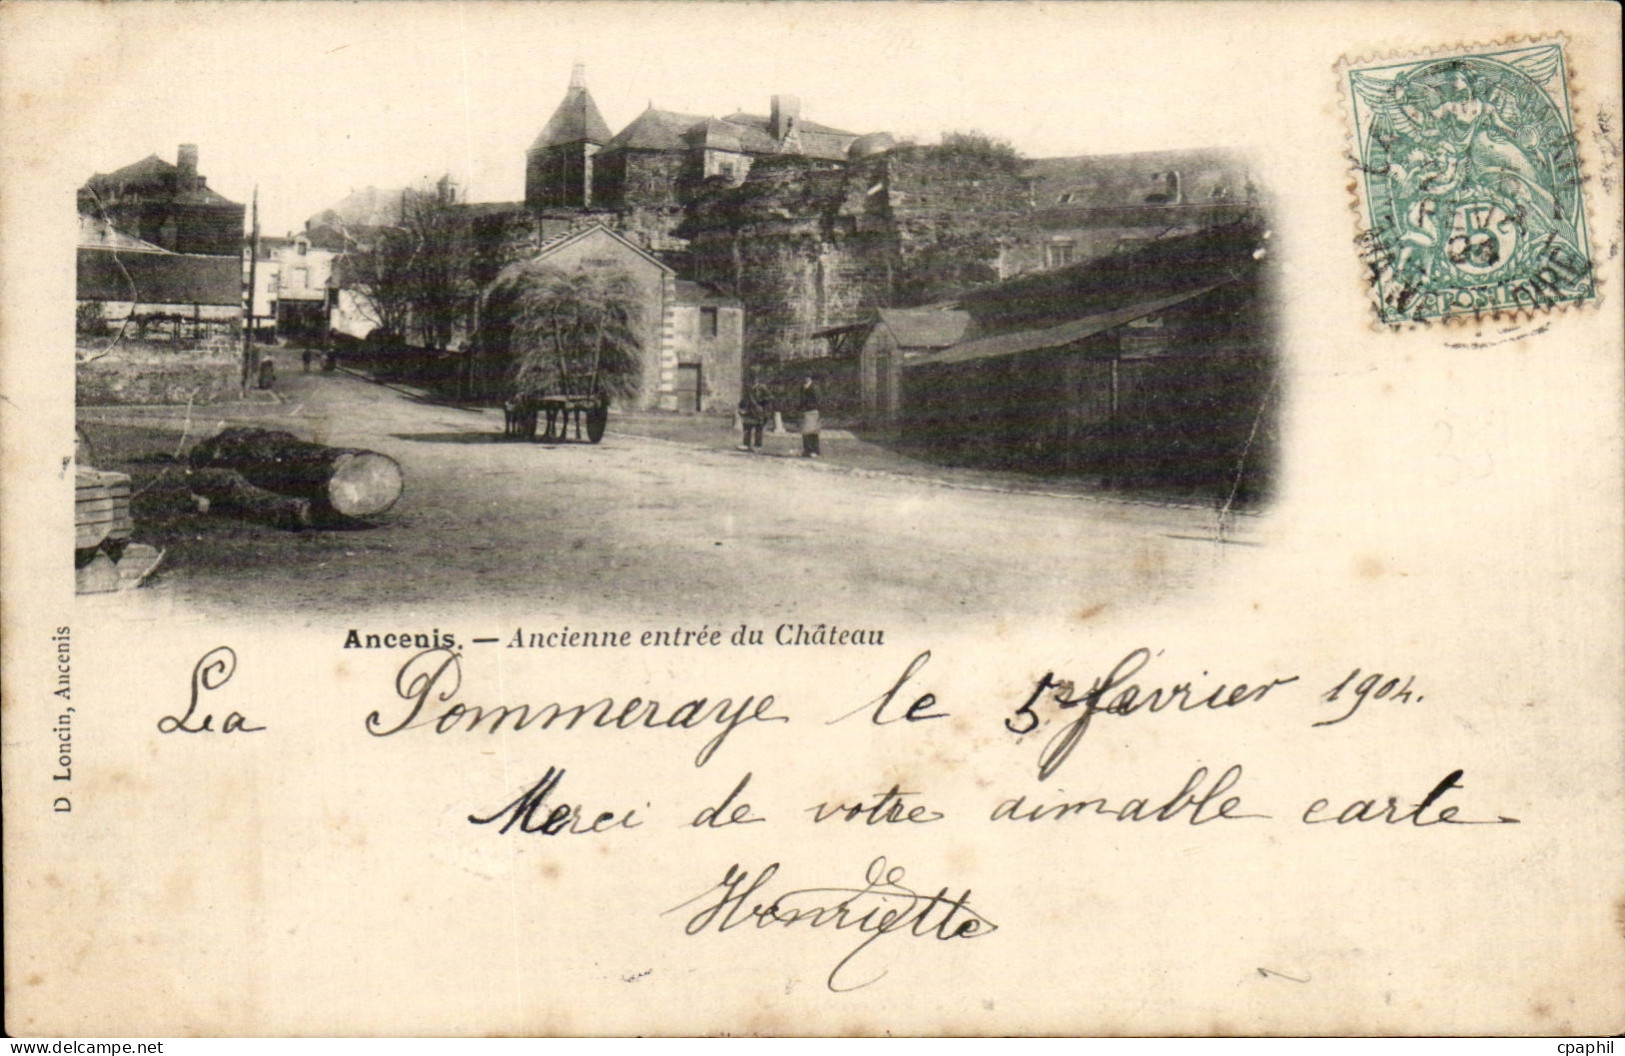 Ancenis. — Ancienne entrée du Château
D Loncin, Ancenis
La Pommeraye le 5 février 1904.
Merci de votre aimable carte
Henriette
5
POSTES
delcampe.net
cpaphil